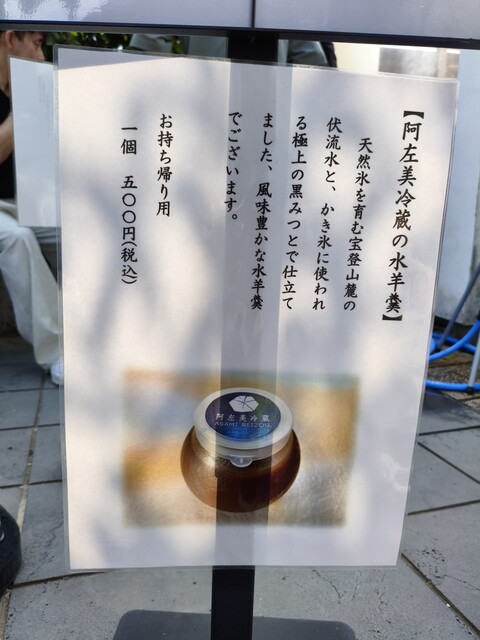 【阿左美冷蔵の水羊羹】
天然氷を育む宝登山麓の
伏流水と、かき氷に使われ
る極上の黒みつとで仕立て
ました、風味豊かな水羊羹
でございます。
お持ち帰り用
一個　五〇〇円(税込)
阿左美冷蔵
ASAMI REIZOU